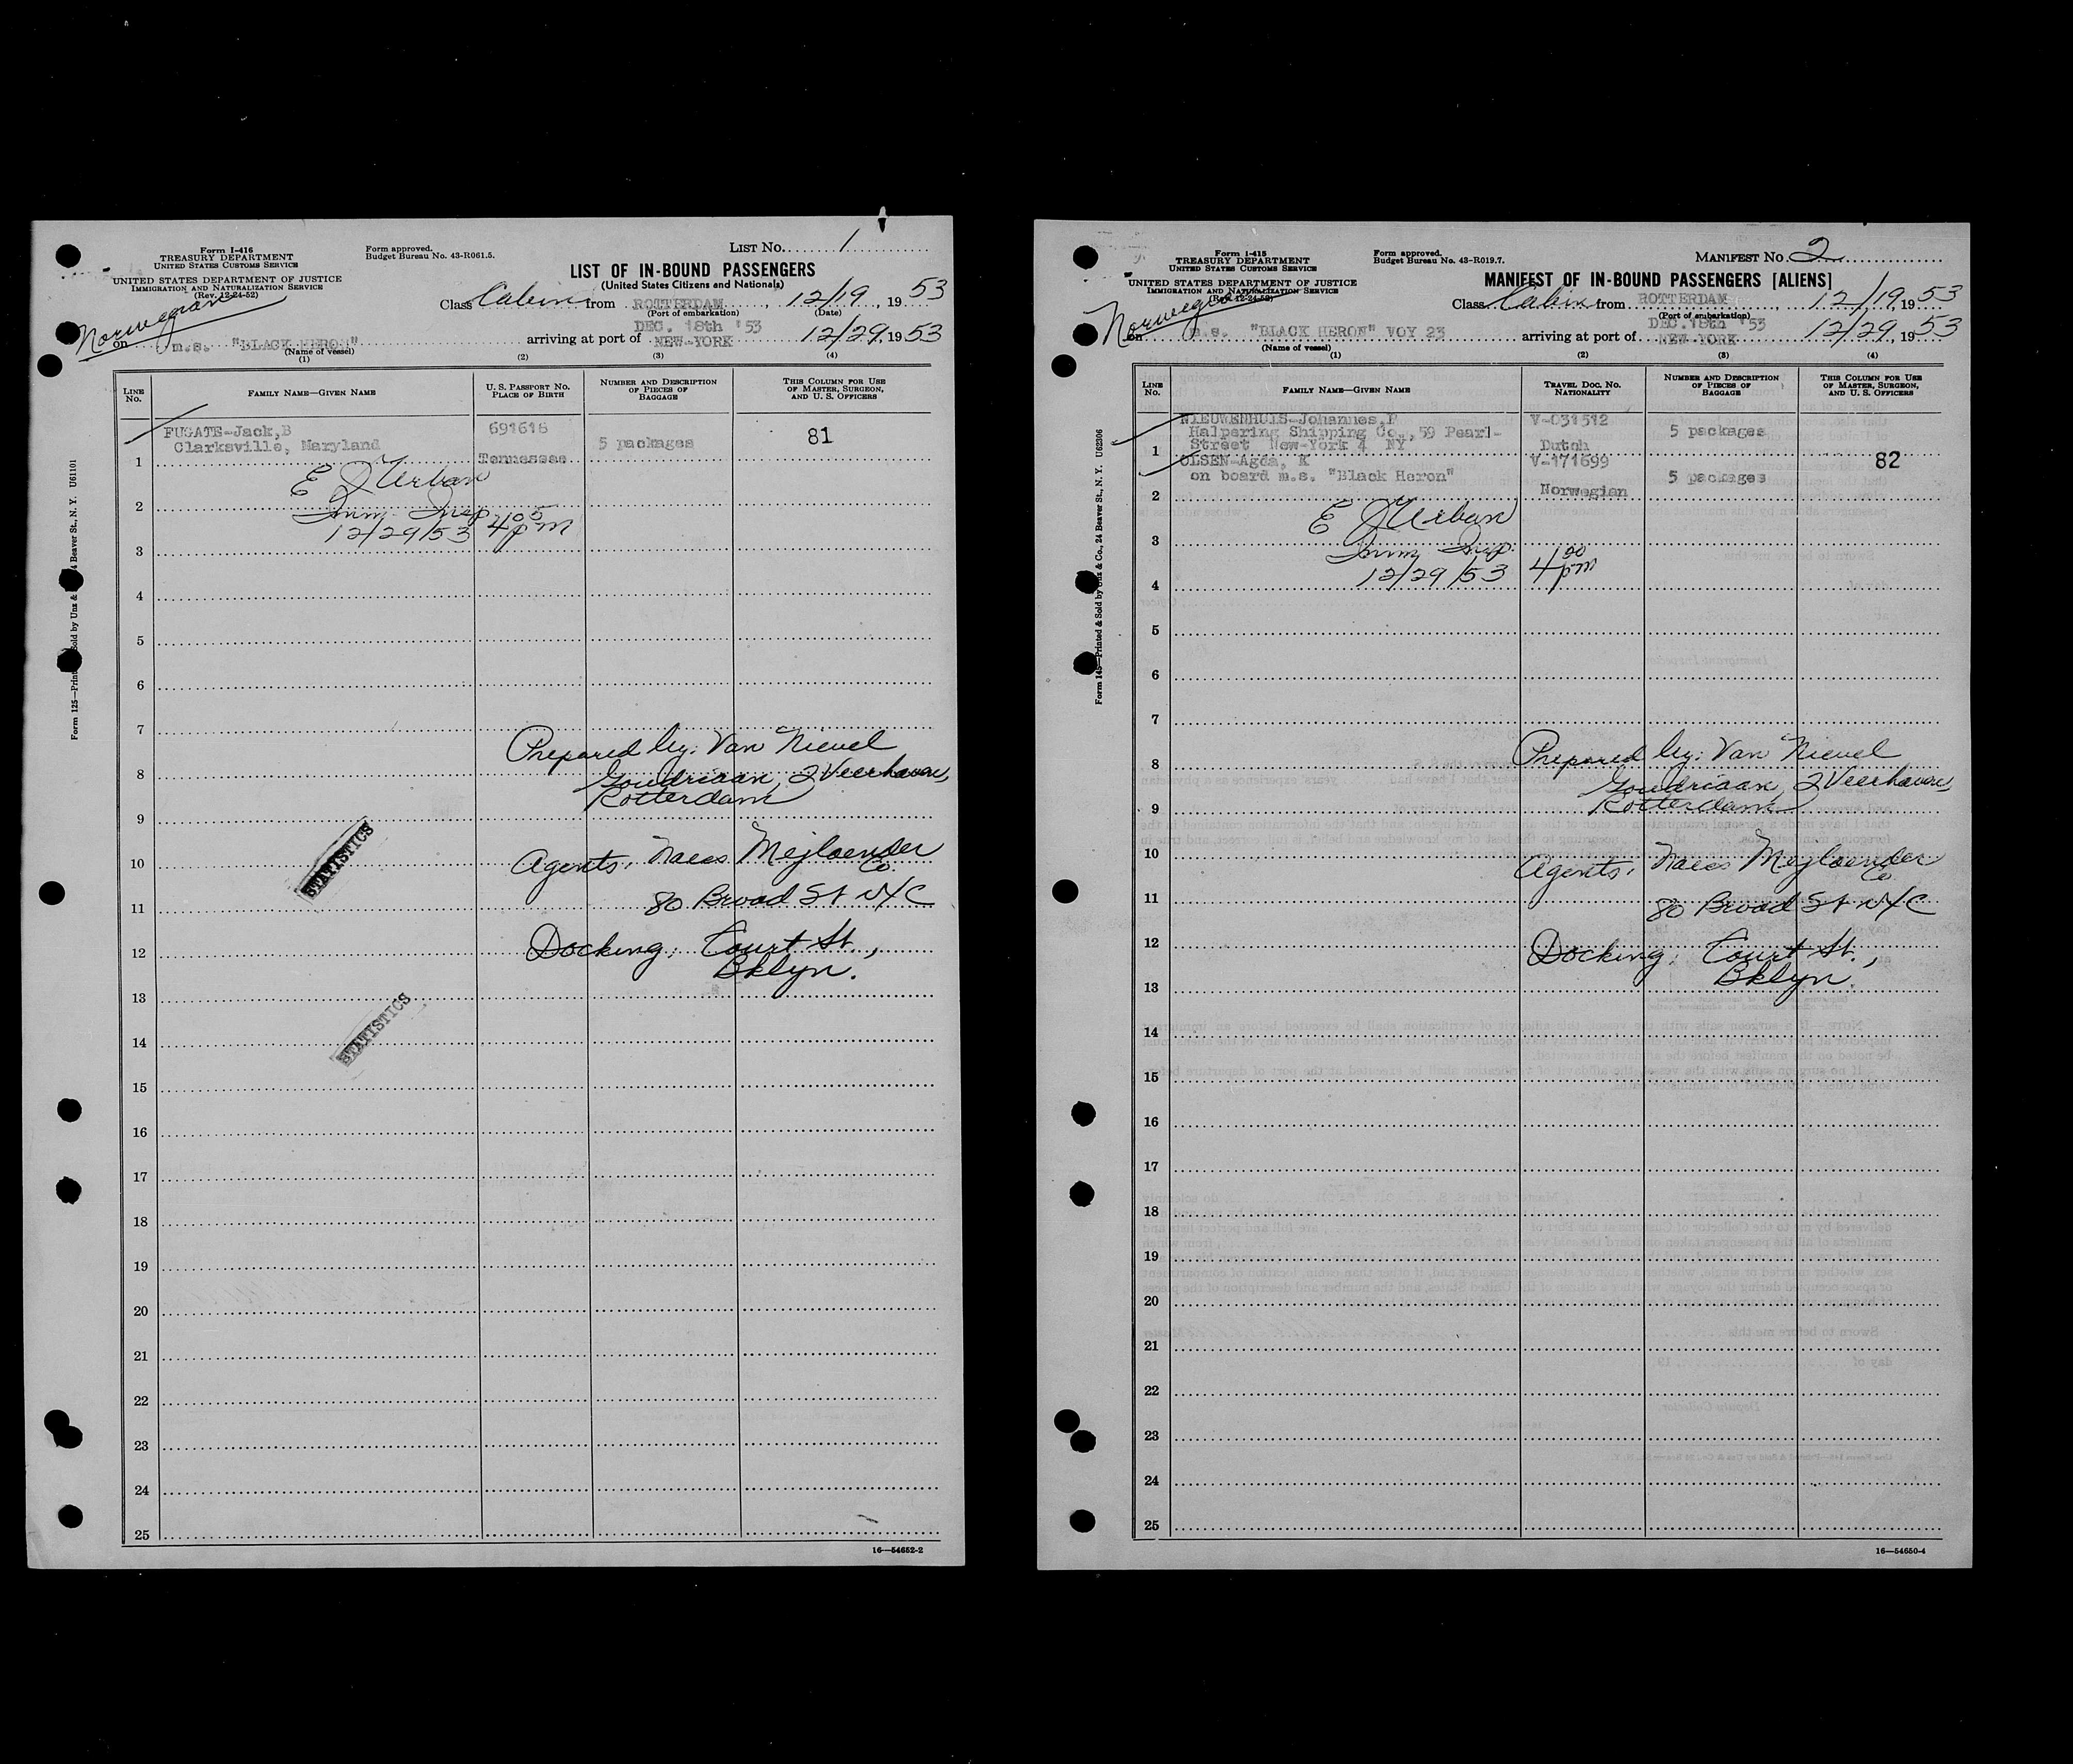 Form I-416
TREASURY DEPARTMENT
UNITED STATES CUSTOMS SERVICE
UNITED STATES DEPARTMENT OF JUSTICE
IMMIGRATION AND NATURALIZATION SERVICE
(Rev. 12-24-52)
Form approved.
Budget Bureau No. 43-R061.5.
LIST No. 1
LIST OF IN-BOUND PASSENGERS
(United States Citizens and Nationals)
Norwegian
Class Cabin from ROTTERDAM, 12/19, 1953
(Port of embarkation) (Date)
DEC. 18th '53
on m.s. "BLACK HERON" arriving at port of NEW-YORK 12/29, 1953
(Name of vessel)
(1) (2) (3) (4)
LINE No.
FAMILY NAME—GIVEN NAME
U. S. PASSPORT NO. PLACE OF BIRTH
NUMBER AND DESCRIPTION OF PIECES OF BAGGAGE
THIS COLUMN FOR USE OF MASTER, SURGEON, AND U. S. OFFICERS
FUGATE-Jack,B 691616 81
Clarksville, Maryland 5 packages
1 Tennessee
E J Urban
2
Imm. Insp.
12/29/53 4 05 pm
3
4
5
6
7
Prepared by: Van Nievel
8 Goudriaan, 2 Veerhaven,
Rotterdam
9
10 Agents: Naess Mejlaender Co.
11 80 Broad St NYC
12 Docking: Court St.,
Bklyn.
13
14
15
16
17
18
19
20
21
22
23
24
25
STATISTICS
STATISTICS
16—54652-2
Form I-415
TREASURY DEPARTMENT
UNITED STATES CUSTOMS SERVICE
UNITED STATES DEPARTMENT OF JUSTICE
IMMIGRATION AND NATURALIZATION SERVICE
(Rev. 12-24-52)
Form approved.
Budget Bureau No. 43-R019.7.
MANIFEST No. 2
MANIFEST OF IN-BOUND PASSENGERS [ALIENS]
Norwegian
Class Cabin from ROTTERDAM, 12/19, 1953
(Port of embarkation)
DEC.18th '53
on m.s. "BLACK HERON" VOY 23 arriving at port of NEW-YORK 12/29, 1953
(Name of vessel)
(1) (2) (3) (4)
LINE No.
FAMILY NAME—GIVEN NAME
TRAVEL DOC. NO. NATIONALITY
NUMBER AND DESCRIPTION OF PIECES OF BAGGAGE
THIS COLUMN FOR USE OF MASTER, SURGEON, AND U. S. OFFICERS
NIEUWENHUIS-Johannes,P V-031512
Halpering Shipping Co.,59 Pearl- 5 packages
1 Street New-York 4 NY Dutch
OLSEN-Agda, K V-171699 82
on board m.s. "Black Heron" 5 packages
2 Norwegian
E J Urban
3
Imm Insp.
12/29/53 4 00 pm
4
5
6
7
8 Prepared by: Van Nievel
Goudriaan, 2 Veerhaven,
9 Rotterdam
10 Agents: Naess Mejlaender Co
11 80 Broad St NYC
12 Docking: Court St.,
Bklyn.
13
14
15
16
17
18
19
20
21
22
23
24
25
16—54650-4